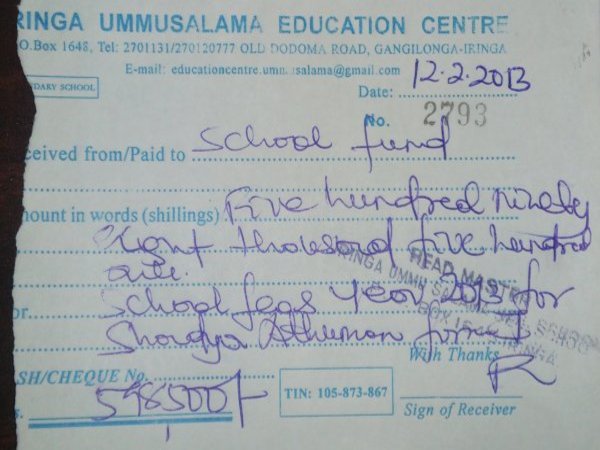 RINGA UMMUSALAMA EDUCATION CENTRE
.O.Box 1648, Tel: 2701131/270120777 OLD DODOMA ROAD, GANGILONGA-IRINGA
E-mail: educationcentre.umm salama@gmail.com
NDARY SCHOOL
Date: 12.2.2013
No. 2793
ceived from/Paid to School fund
mount in words (shillings) Five hundred ninety
eight thousand five hundred
HEAD MASTER
IRINGA UMMU
or. School fees year 2013 for
form I
With Thanks
SH/CHEQUE No.
s. 598500/-
TIN: 105-873-867
Sign of Receiver